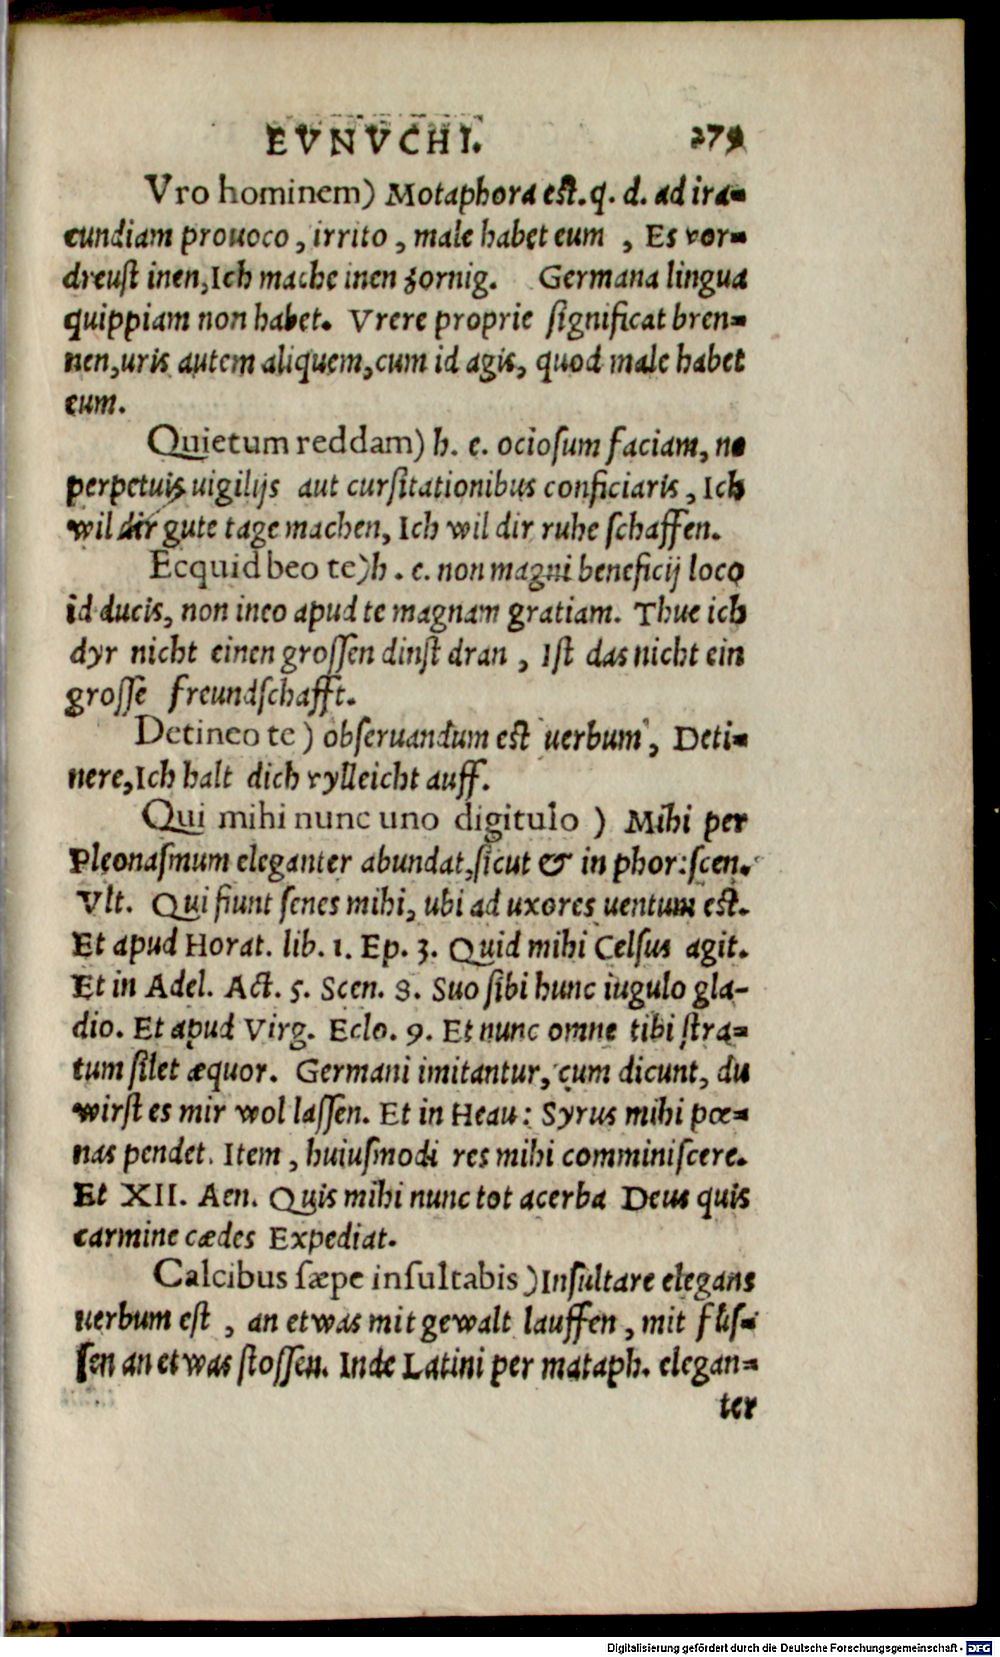 EVNVCHI. 279
Vro hominem) Motaphora est. q. d. ad ira=
cundiam prouoco, irrito, male habet eum, Es vor=
dreust inen, Ich mache inen zornig. Germana lingua
quippiam non habet. Vrere proprie significat bren=
nen, uris autem aliquem, cum id agis, quod male habet
eum.
Quietum reddam) h. e. ociosum faciam, ne
perpetuis uigilijs aut cursitationibus conficiaris, Ich
wil dir gute tage machen, Ich wil dir ruhe schaffen.
Ecquid beo te) h. e. non magni beneficij loco
id ducis, non ineo apud te magnam gratiam. Thue ich
dyr nicht einen grossen dinst dran, Ist das nicht ein
grosse freundschafft.
Detineo te) obseruandum est uerbum, Deti=
nere, Ich halt dich vylleicht auff.
Qui mihi nunc uno digitulo) Mihi per
Pleonasmum eleganter abundat, sicut & in phor: scen.
Vlt. Qui fiunt senes mihi, ubi ad uxores uentum est.
Et apud Horat. lib. 1. Ep. 3. Quid mihi Celsus agit.
Et in Adel. Act. 5. Scen. 8. Suo sibi hunc iugulo gla-
dio. Et apud Virg. Eclo. 9. Et nunc omne tibi stra=
tum silet æquor. Germani imitantur, cum dicunt, du
wirst es mir wol lassen. Et in Heau: Syrus mihi pœ=
nas pendet. Item, huiusmodi res mihi comminiscere.
Et XII. Aen. Quis mihi nunc tot acerba Deus quis
carmine cædes Expediat.
Calcibus sæpe insultabis) Insultare elegans
uerbum est, an etwas mit gewalt lauffen, mit füs=
sen an etwas stossen. Inde Latini per mataph. elegan=
ter
Digitalisierung gefördert durch die Deutsche Forschungsgemeinschaft - DFG